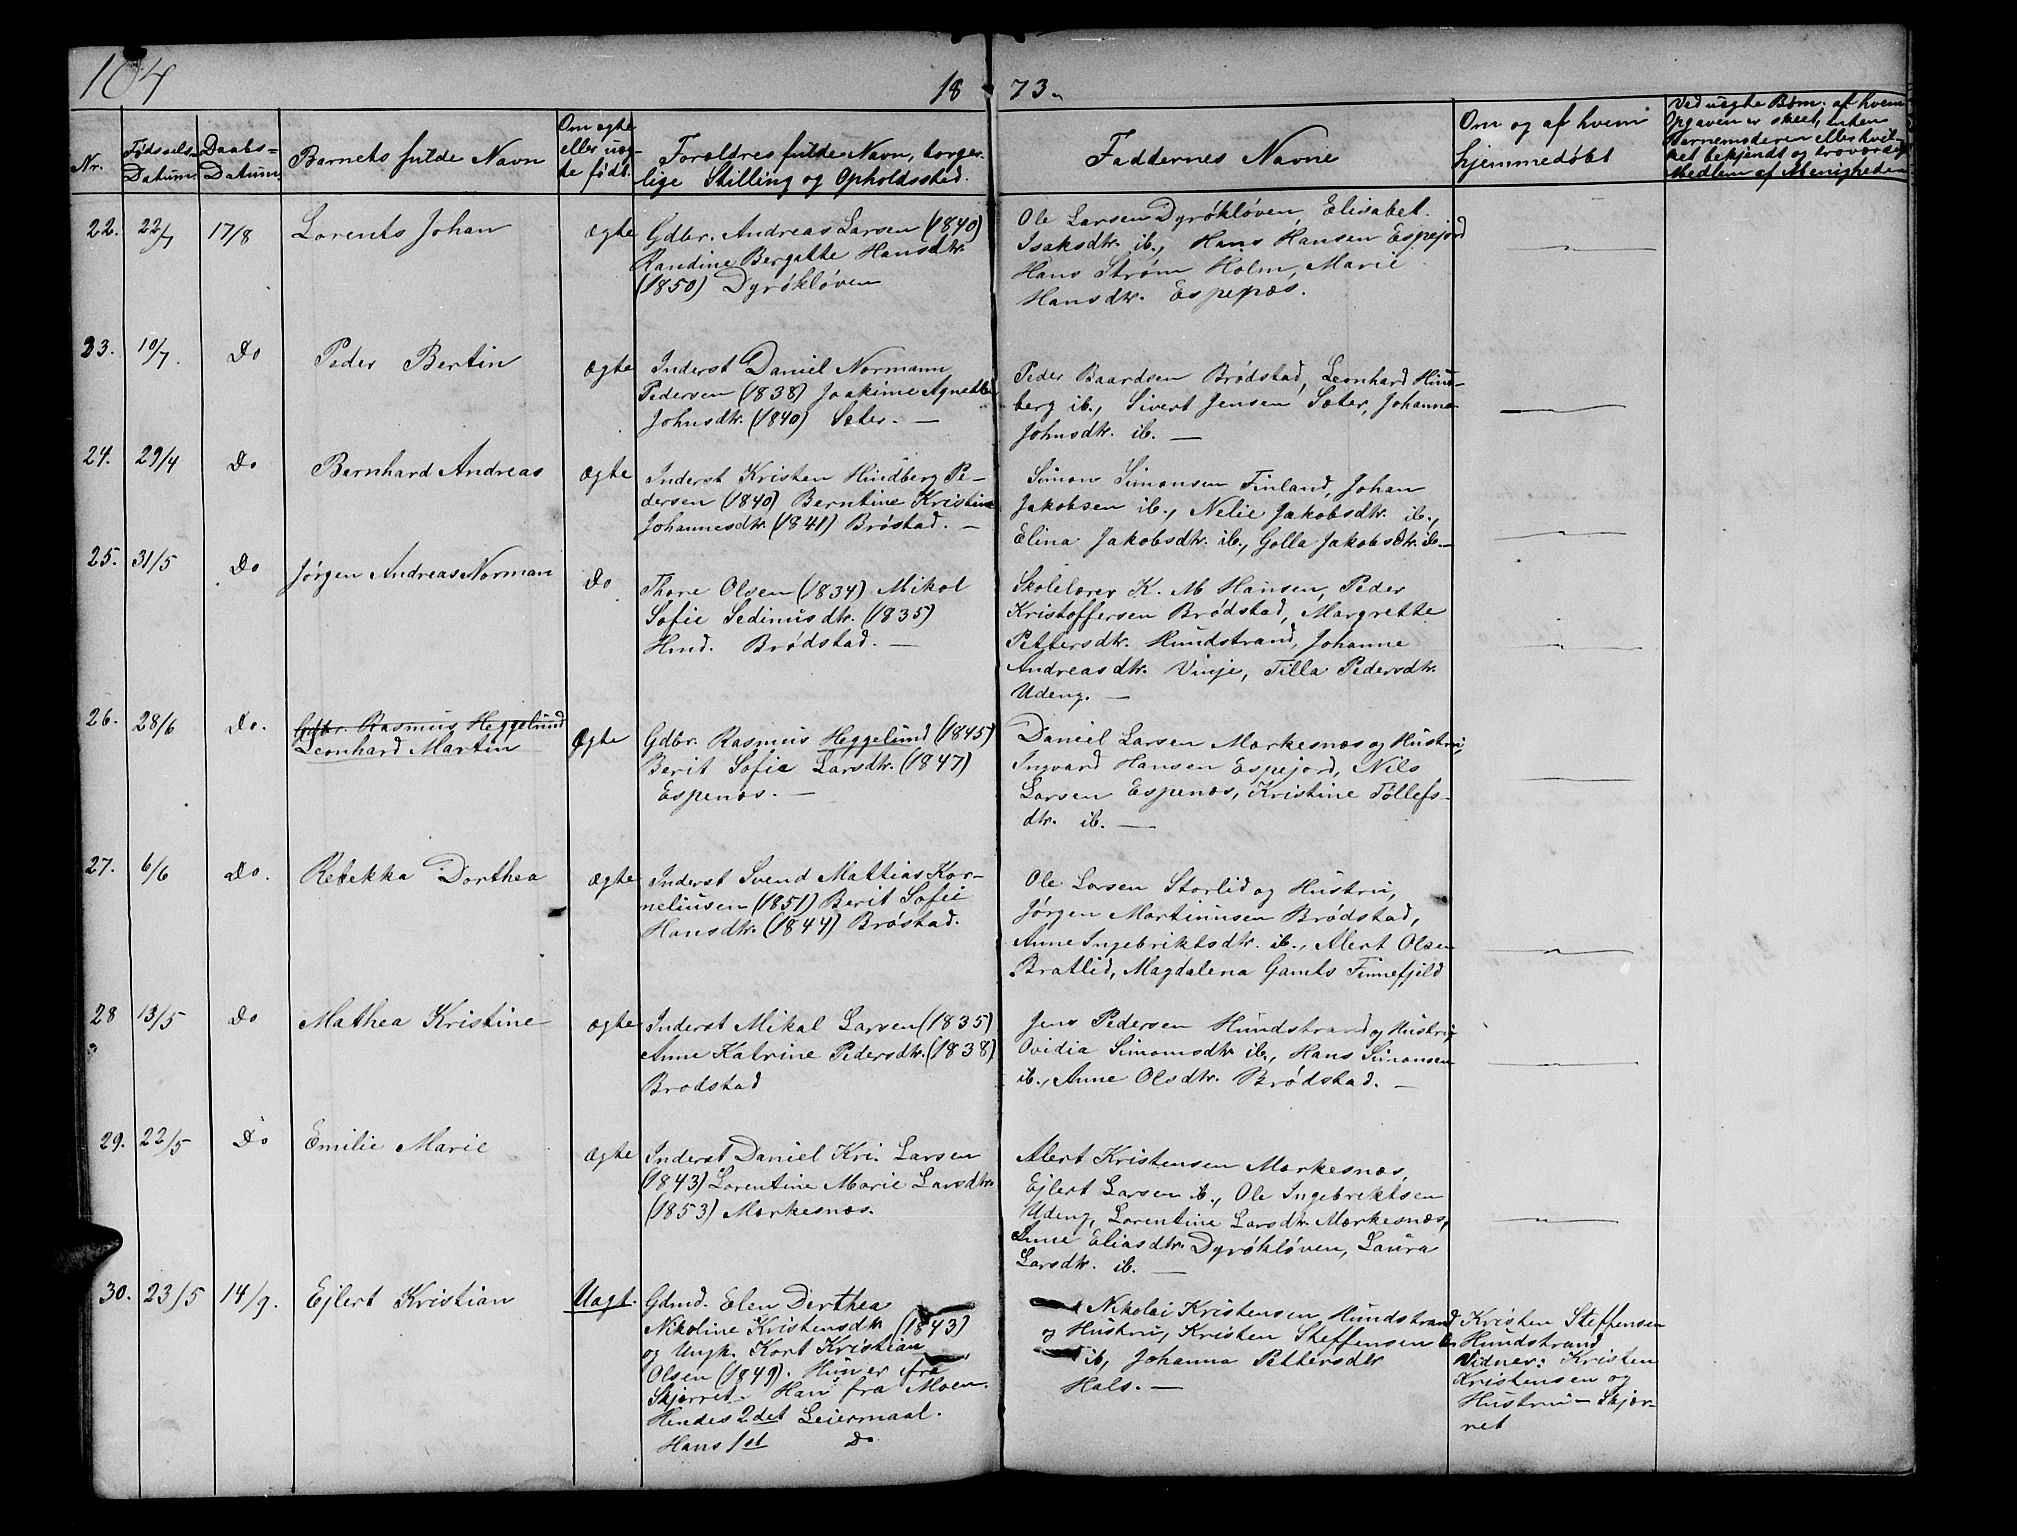 104
18 73.
Nr.
Fødsels-
Datum
Daabs-
Datum
Barnets fulde Navn
Om ægte
eller uæg-
te født.
Forældres fulde Navn, borger-
lige Stilling og Opholdssted.
Faddernes Navne
Om og af hvem
hjemmedøbt
Ved uægte Børn: af hvem
Opgaven er skeet, enten
Barnemoderen eller hvil-
ket bekjendt og troværdigt
Medlem af Menigheden
22. 22/7 17/8 Lorents Johan ægte
Gdbr. Andreas Larsen (1840)
Randine Bergatte Hansdtr.
(1850) Dyrøkløven
Ole Larsen Dyrøkløven, Elisabet
Isaksdtr. ib., Hans Hansen Espejord
Hans Strøm Holm, Marie
Hansdtr. Espenæs.
23. 10/7. Do Peder Bertin ægte
Inderst Daniel Normann
Pedersen (1838) Joakime Agnethe
Johnsdtr. (1840) Sæter. —
Peder Baardsen Brødstad, Leonhard Hind-
berg ib., Sivert Jensen Sæter, Johanna
Johnsdtr. ib. —
24. 29/4 Do Bernhard Andreas ægte
Inderst Kristen Hindberg Pe-
dersen (1840) Berntine Kristine
Johannesdtr. (1841) Brøstad. —
Simon Simonsen Finland, Johan
Jakobsen ib., Nelie Jakobsdtr. ib.,
Elina Jakobsdtr. ib., Golla Jakobsdtr. ib. —
25. 31/5 Do Jørgen Andreas Norman Do
Thore Olsen (1834) Mikol
Sofie Sedinusdtr. (1835)
Hmd. Brødstad. —
Skolelærer K. M Hansen, Peder
Kristoffersen Brødstad, Margrette
Pettersdtr. Hundstrand, Johanne
Andreasdtr. Vinje, Tilla Pedersdtr.
Udeng. —
26. 28/6 Do. Gdbr. Rasmus Heggelund
Leonhard Martin Ægte
Gdbr. Rasmus Heggelund (1845)
Berit Sofie Larsdtr. (1847)
Espenæs. —
Daniel Larsen Mærkesnæs og Hustru,
Ingvard Hansen Espejord, Nils
Larsen Espenæs, Kristine Tøllefs-
dtr. ib. —
27. 6/6 do. Rebekka Dorthea ægte
Inderst Svend Mattias Kor-
neliusen (1851) Berit Sofie
Hansdtr. (1844) Brøstad.
Ole Larsen Storlid og Hustru,
Jørgen Martinusen Brødstad,
Anne Ingebriktsdtr. ib., Alert Olsen
Bratlid, Magdalena Gamts Finnefjeld
28 13/5 Do Mathea Kristine ægte
Inderst Mikal Larsen (1835)
Anne Katrine Pedersdtr. (1838)
Brodstad
Jens Pedersen Hundstrand og Hustru,
Ovidia Simonsdtr ib., Hans Simonsen
ib., Anne Olsdtr. Brødstad. —
29. 22/5 Do Emilie Marie ægte
Inderst Daniel Kri. Larsen
(1843) Lorentine Marie Larsdtr.
(1853) Mærkesnæs.
Alert Kristensen Mærkesnæs,
Ejlert Larsen ib., Ole Ingebriktsen
Udeng, Lorentine Larsdtr. Mærkesnæs,
Anne Eliasdtr. Dyrøkløven, Laura
Larsdtr. ib. —
30. 23/5 14/9. Ejlert Kristian Uægt.
Gdmd. Elen Dorthea
Nikoline Kristensdtr (1843)
og Ungk. Kort Kristian
Olsen (1849). Hun er fra
Skjærret. Han fra Moen.
Hendes 2det Leiermaal.
Hans 1st Do
Nikolai Kristensen Hundstrand
og Hustru, Kristen Steffensen
ib, Johanna Pettersdtr
Hals. —
Kristen Steffensen
Hundstrand
Vidner: Kristen
Kristensen og
Hustru — Skjær-
ret